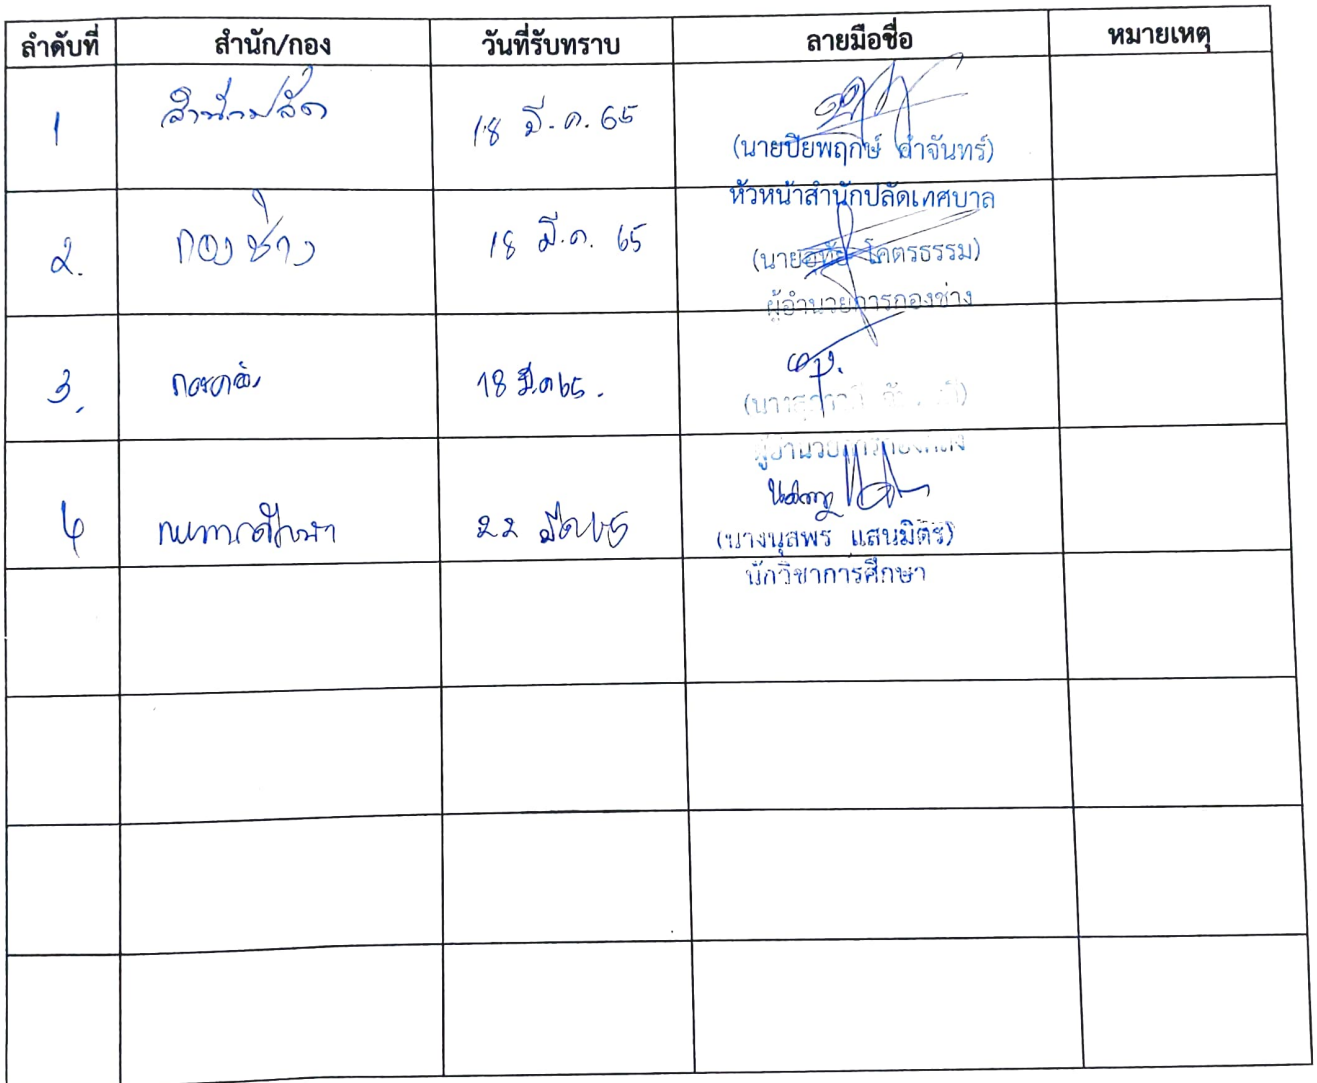 ลำดับที่ สำนัก/กอง วันที่รับทราบ ลายมือชื่อ หมายเหตุ
1 สำนักปลัด 18 มี.ค. 65
(นายปิยพฤกษ์ คำจันทร์)
หัวหน้าสำนักปลัดเทศบาล
2. กองช่าง 18 มี.ค. 65
(นายอุทัย โคตรธรรม)
ผู้อำนวยการกองช่าง
3. กองคลัง 18 มี.ค 65.
ผู้อำนวยการกองคลัง
4 กองการศึกษา 22 มีค 65
(นางนุสพร แสนมิตร)
นักวิชาการศึกษา